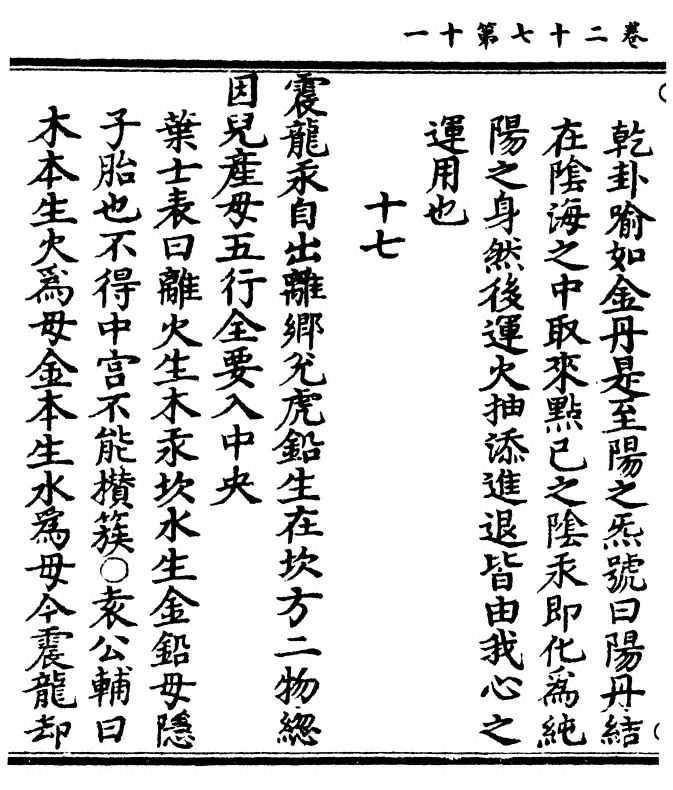 卷二十七第十一
乾卦喻如金丹是至陽之炁號曰陽丹結
在陰海之中取來點己之陰汞即化爲純
陽之身然後運火抽添進退皆由我心之
運用也
十七
震龍汞自出離鄉兊虎鉛生在坎方二物緫
因兒産母五行全要入中央
葉士表曰離火生木汞坎水生金鉛母隱
子胎也不得中宫不能攢簇○袁公輔曰
木本生火爲母金本生水爲母今震龍却